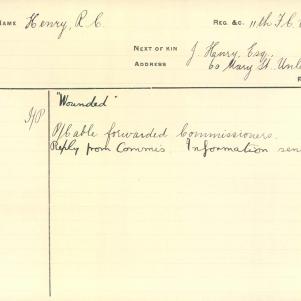 NAME Henry, R.C. REG. &C. 11th F.C.
NEXT OF KIN J. Henry, Esq.,
ADDRESS 60 Mary St. Unle
"Wounded"
P/Cable forwarded Commissioners.
Reply from Commis Information sen